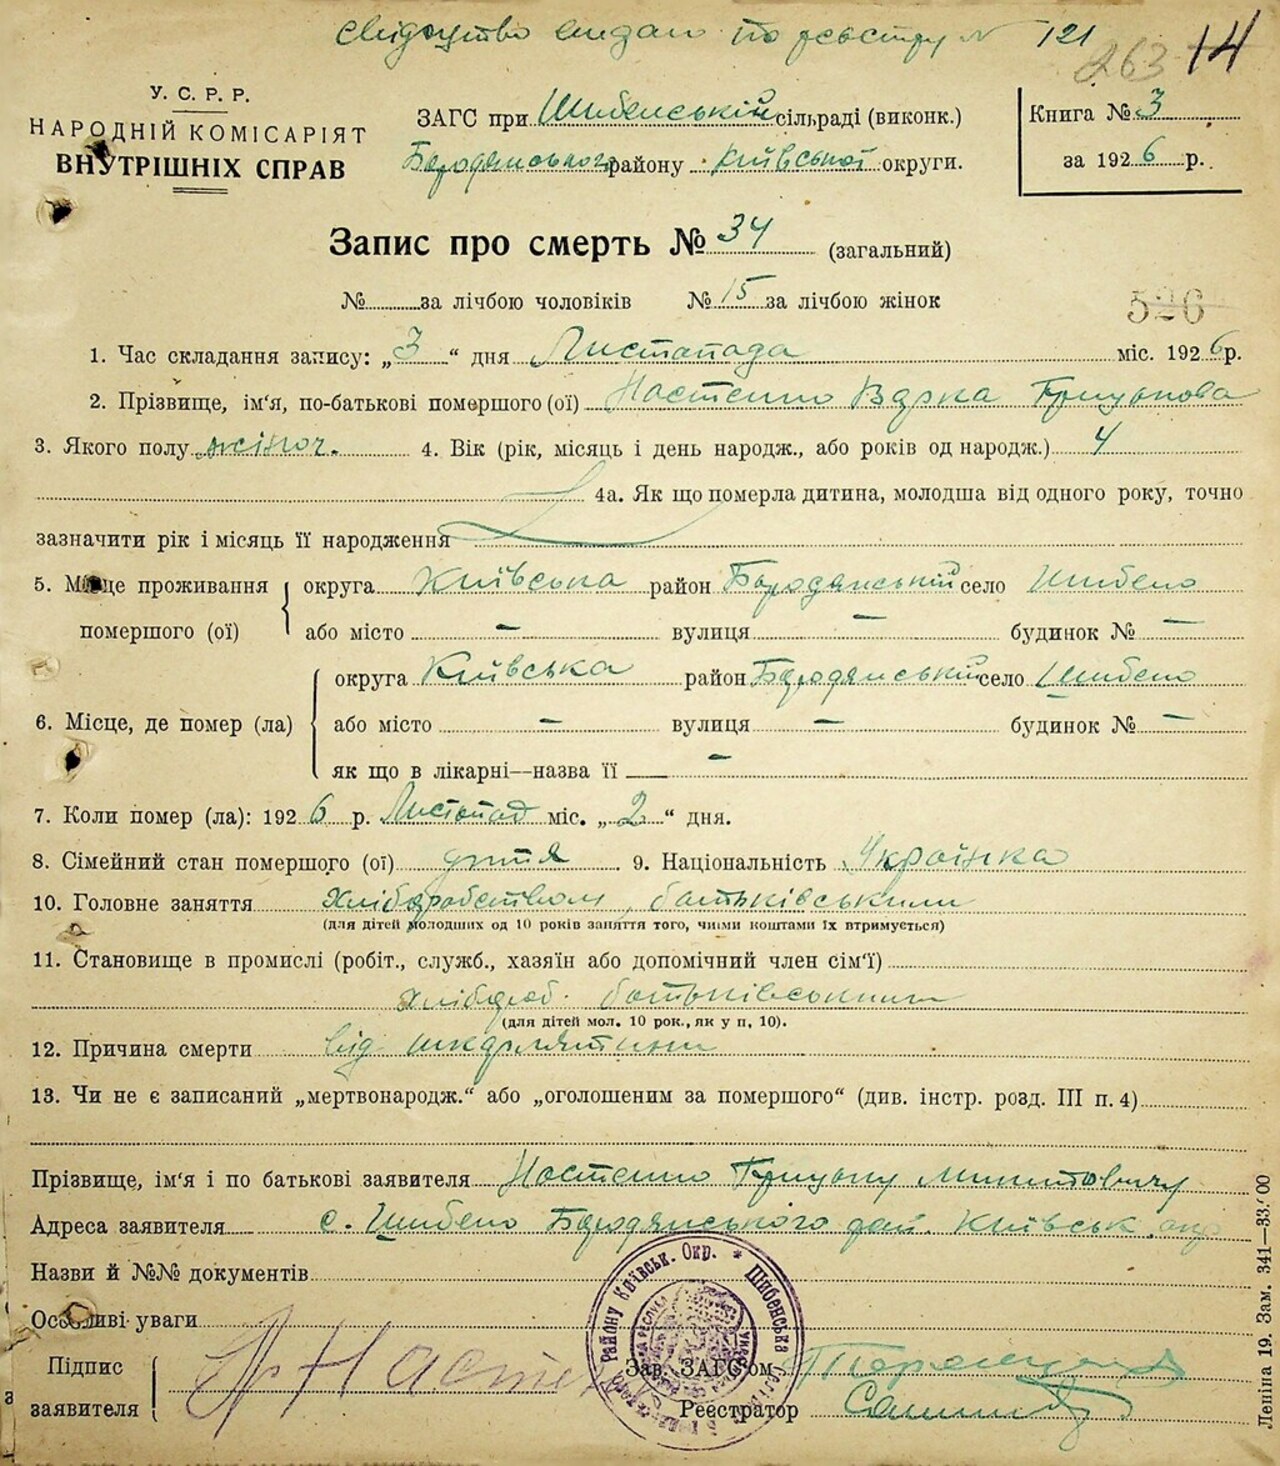 свідоцтво видано по реєстру № 121
263 14
У. С. Р. Р.
НАРОДНІЙ КОМІСАРІЯТ
ВНУТРІШНІХ СПРАВ
ЗАГС при Шибенській сільраді (виконк.)
Бородянського району Київської округи.
Книга № 3
за 1926 р.
Запис про смерть № 34 (загальний)
№ за лічбою чоловіків № 15 за лічбою жінок
526
1. Час складання запису: „3“ дня Листопада міс. 1926 р.
2. Прізвище, ім‘я, по-батькові помершого (ої) Костенко Варка Грицькова
3. Якого полу жіноч. 4. Вік (рік, місяць і день народж., або років од народж.) 4
4а. Як що померла дитина, молодша від одного року, точно
зазначити рік і місяць її народження
5. Місце проживання помершого (ої) округа Київська район Бородянський село Шибено
або місто — вулиця — будинок № —
6. Місце, де помер (ла) округа Київська район Бородянський село Шибено
або місто — вулиця — будинок № —
як що в лікарні—назва її —
7. Коли помер (ла): 1926 р. Листопад міс. „2“ дня.
8. Сімейний стан помершого (ої) дитя 9. Національність Українка
10. Головне заняття Хліборобством, батьківськими
(для дітей молодших од 10 років заняття того, чиїми коштами їх втримується)
11. Становище в промислі (робіт., служб., хазяїн або допомічний член сім‘ї)
хлібороб. батьківськими
(для дітей мол. 10 рок., як у п. 10).
12. Причина смерти від шкарлятини
13. Чи не є записаний „мертвонародж.“ або „оголошеним за помершого“ (див. інстр. розд. III п. 4)
Прізвище, ім‘я і по батькові заявителя Костенко Грицьку Микитовичу
Адреса заявителя с. Шибено Бородянського рай. Київськ. окр
Назви й №№ документів
Особливі уваги
Підпис заявителя
Зав. ЗАГС‘ом
Реєстратор
Району Київськ. Окр. * Шибенська
Леніна 19. Зам. 341—33.